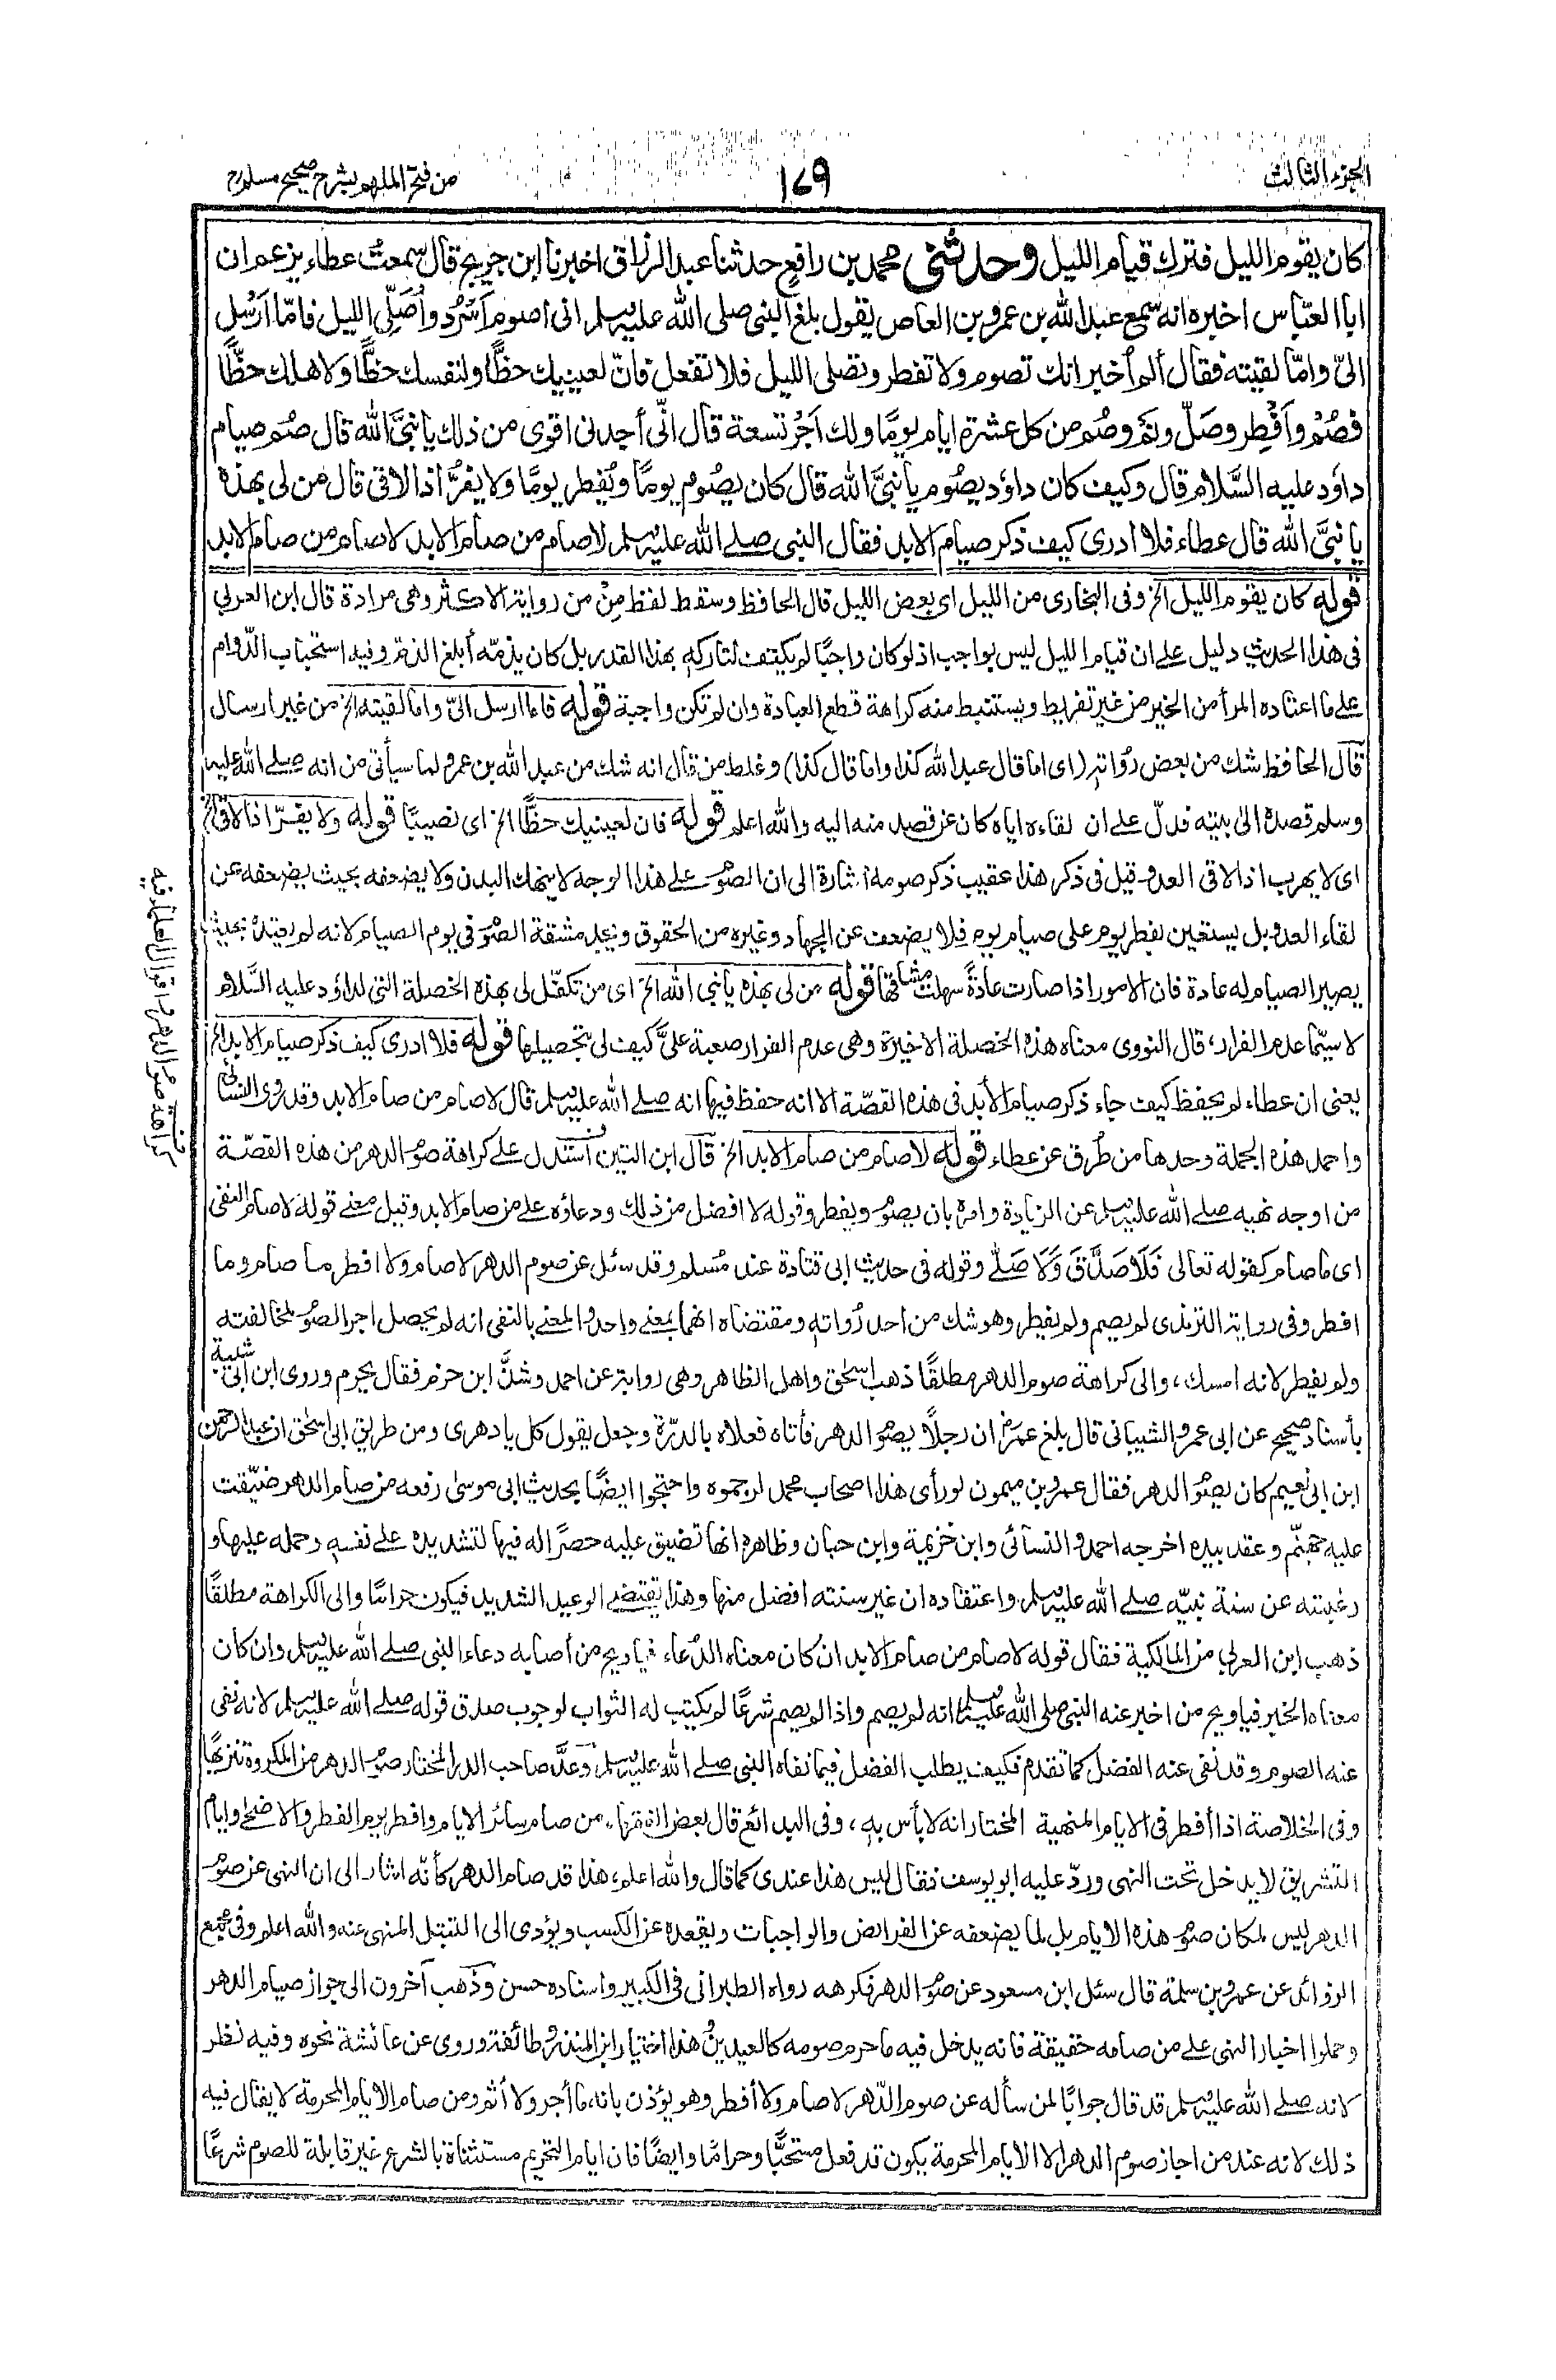 الجزء الثالث
١٧٩
من فتح الملهم بشرح صحيح مسلم
كان يقوم الليل فترك قيام الليل وحدثنى محمد بن رافع حدثنا عبد الرزاق اخبرنا ابن جريج قال سمعت عطاء يزعم ان
ابا العبّاس اخبره انه سمع عبد الله بن عمرو بن العاص يقول بلغ النبى صلى الله عليه وسلم انى اصوم اَسْرُد واُصَلّى الليل فامّا اَرْسَل
الىّ وامّا لقيته فقال ألم اُخبر انك تصوم ولا تفطر وتصلى الليل فلا تفعل فانّ لعينيك حظًّا ولنفسك حظًّا ولاهلك حظًّا
فصُمْ واَفْطِر وصَلّ ونَم وصُم من كل عشرة ايام يومًا ولك اَجْر تسعة قال انّى أجدنى اقوى من ذلك يا نبىَّ الله قال صُم صيام
داؤد عليه السَّلام قال وكيف كان داؤد يصُوم يا نبىَّ الله قال كان يصُوم يومًا ويُفطر يومًا ولا يفرُّ اذا لاقى قال من لى بهذه
يا نبىَّ الله قال عطاء فلا ادرى كيف ذكر صيام الابد فقال النبى صلے الله عليه وسلم لا صام من صام الابد لا صام من صام الابد
قوله كان يقوم الليل الخ وفى البخارى من الليل اى بعض الليل قال الحافظ وسقط لفظ مِنْ من رواية الاكثر وهى مرادة قال ابن العربي
فى هذا الحديث دليل علے ان قيام الليل ليس بواجب اذ لو كان واجبًا لم يكتف لتاركه بهذا القدر بل كان يذمّه أبلغ الذم وفيه استحباب الدّوام
علے ما اعتاده المرأ من الخير من غير تفريط ويستنبط منه كراهة قطع العبادة وان لم تكن واجبة قوله فاما ارسل الىّ واما لقيته الخ من غير ارسال
قال الحافظ شك من بعض رُواته (اى اما قال عبد الله كذا واما قال كذا) وغلط من قال انه شك من عبد الله بن عمرو لما سيأتى من انه صلے الله عليه
وسلم قصده الى بيته فدلّ علے ان لقاءه اياه كان عن قصد منه اليه والله اعلم قوله فان لعينيك حظًّا الخ اى نصيبًا قوله ولا يفرّ اذا لاقى الخ
اى لا يهرب اذا لاقى العدو قيل فى ذكر هذا عقيب ذكر صومه اشارة الى ان الصوم علے هذا الوجه لا ينهك البدن ولا يضعفه بحيث يضعفه عن
لقاء العدو بل يستعين بفطر يوم على صيام يوم فلا يضعف عن الجهاد وغيره من الحقوق ويجد مشقة الصوم فى يوم الصيام لانه لم يعتده بحيث
يصير الصيام له عادة فان الامور اذا صارت عادةً سهلت مشاقها قوله من لى بهذه يا نبى الله الخ اى من تكفّل لى بهذه الخصلة التى لداؤد عليه السَّلام
لا سيّما عدم الفرار، قال النووى معناه هذه الخصلة الاخيرة وهى عدم الفرار صعبة علىَّ كيف لى بتحصيلها قوله فلا ادرى كيف ذكر صيام الابد الخ
يعنى ان عطاء لم يحفظ كيف جاء ذكر صيام الأبد فى هذه القصّة الا انه حفظ فيها انه صلے الله عليه وسلم قال لا صام من صام الابد وقد روى النسائى
واحمد هذه الجملة وحدها من طُرق عن عطاء قوله لا صام من صام الابد الخ قال ابن التين استدل علے كراهة صوم الدهر من هذه القصّة
من اوجه نهيه صلے الله عليه وسلم عن الزيادة وامره بان يصوم ويفطر وقوله لا افضل من ذلك ودعاؤه علے من صام الابد وقيل معنے قوله لا صام النفى
اى ما صام كقوله تعالى فَلَا صَدَّقَ وَلَا صَلّٰے وقوله فى حديث ابى قتادة عند مُسلم وقد سئل عن صوم الدهر لا صام ولا افطر ما صام وما
افطر وفى رواية الترمذى لم يصم ولم يفطر وهو شك من احد رُواته ومقتضاه انهما بمعنى واحد والمعنے بالنفى انه لم يحصل اجر الصوم لمخالفته
ولم يفطر لانه امسك، والى كراهة صوم الدهر مطلقًا ذهب اسحٰق واهل الظاهر وهى رواية عن احمد وشذَّ ابن حزم فقال يحرم وروى ابن ابى شيبة
بأسناد صحيح عن ابى عمرو الشيبانى قال بلغ عمر ان رجلًا يصوم الدهر فأتاه فعلاه بالدرّة وجعل يقول كل يا دهرى ومن طريق ابى اسحٰق ان عبد الرحمن
ابن ابى نعيم كان يصوم الدهر فقال عمرو بن ميمون لو رأى هذا اصحاب محمد لرجموه واحتجوا ايضًا بحديث ابى موسىٰ رفعه من صام الدهر ضيّقت
عليه جهنّم وعقد بيده اخرجه احمد والنسائى وابن خزيمة وابن حبان وظاهره انها تضيق عليه حصرًا له فيها لتشديده علے نفسه وحمله عليها و
رغبته عن سنة نبيّه صلے الله عليه وسلم واعتقاده ان غير سنته افضل منها وهذا يقتضے الوعيد الشديد فيكون حرامًا والى الكراهة مطلقًا
ذهب ابن العربي من المالكية فقال قوله لا صام من صام الابد ان كان معناه الدُّعاء فيا ويح من أصابه دعاء النبى صلے الله عليه وسلم وان كان
معناه الخبر فيا ويح من اخبر عنه النبى صلى الله عليه وسلم انه لم يصم واذا لم يصم شرعًا لم يكتب له الثواب لوجوب صدق قوله صلے الله عليه وسلم لانه نفى
عنه الصوم وقد نفى عنه الفضل كما تقدم فكيف يطلب الفضل فيما نفاه النبى صلے الله عليه وسلم وعدَّ صاحب الدر المختار صوم الدهر من المكروه تنزيهًا
وفى الخلاصة اذا أفطر فى الايام المنهية المختار انه لا بأس به، وفى البدائع قال بعض الفقهاء من صام سائر الايام وافطر يوم الفطر والاضحٰے وايام
التشريق لا يدخل تحت النهى وردّ عليه ابو يوسف فقال ليس هذا عندى كما قال والله اعلم، هذا قد صام الدهر كأنّه اشار الى ان النهى عن صوم
الدهر ليس لمكان صوم هذه الايام بل لما يضعفه عن الفرائض والواجبات ويقعده عن الكسب ويؤدى الى التبتل المنهى عنه والله اعلم وفى مجمع
الزوائد عن عمرو بن سلمة قال سئل ابن مسعود عن صوم الدهر فكرهه رواه الطبرانى فى الكبير واسناده حسن وذهب آخرون الى جواز صيام الدهر
وحملوا اخبار النهى علے من صامه حقيقة فانه يدخل فيه ما حرم صومه كالعيدين وهذا اختيار ابن المنذر وطائفة وروى عن عائشة نحوه وفيه نظر
لانه صلے الله عليه وسلم قد قال جوابًا لمن سأله عن صوم الدّهر لا صام ولا أفطر وهو يؤذن بانه ما أجر ولا أثم ومن صام الايام المحرمة لا يقال فيه
ذلك لانه عند من اجاز صوم الدهر الا الايام المحرمة يكون قد فعل مستحبًّا وحرامًا وايضًا فان ايام التحريم مستثناة بالشرع غير قابلة للصوم شرعًا
كراهة صوم الدهر واقوال العلماء فيه